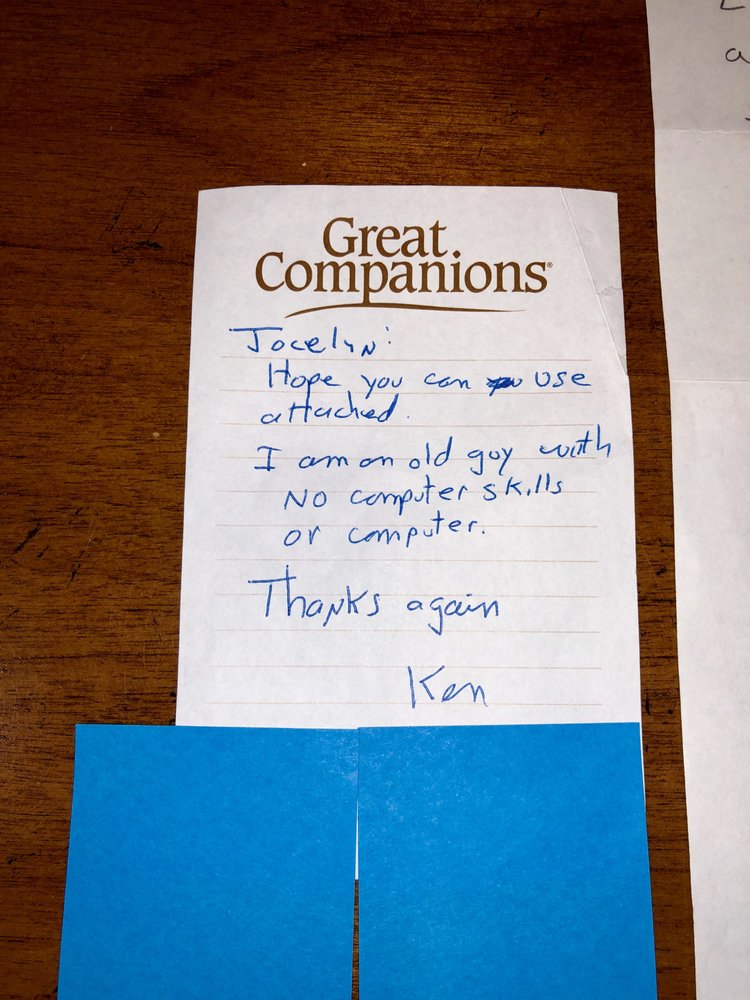 Great
Companions®
Jocelyn:
Hope you can use
attached.
I am an old guy with
No computer skills
or computer.
Thanks again
Ken
a